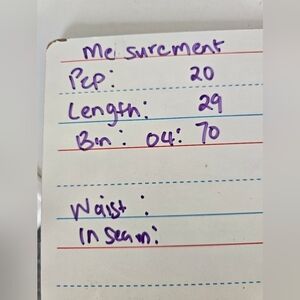 Me surcment
Pcp: 20
Length: 29
Bin: 04: 70
Waist :
In Seam: